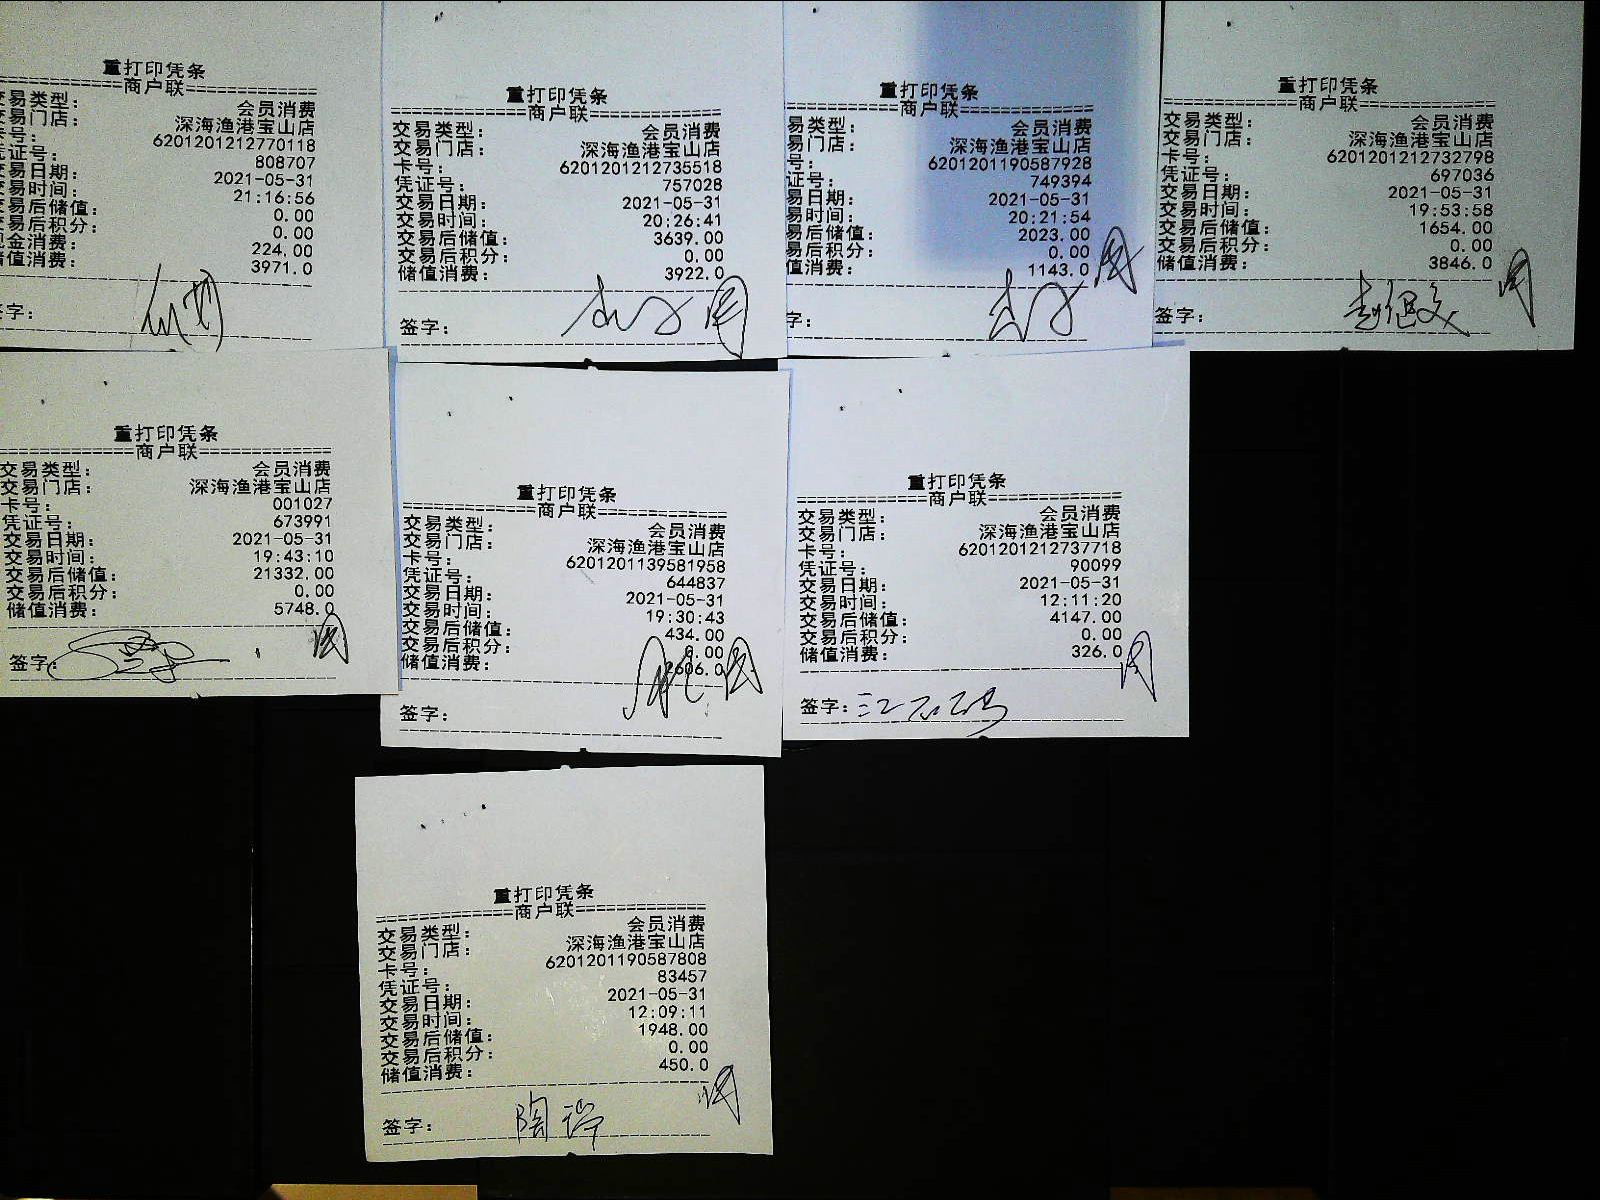 重打印凭条
============商户联============
易类型： 会员消费
易门店： 深海渔港宝山店
号： 6201201212770118
证号： 808707
易日期： 2021-05-31
易时间： 21:16:56
易后储值： 0.00
易后积分： 0.00
金消费： 224.00
值消费： 3971.0
字：
重打印凭条
============商户联============
交易类型： 会员消费
交易门店： 深海渔港宝山店
卡号： 6201201212735518
凭证号： 757028
交易日期： 2021-05-31
交易时间： 20:26:41
交易后储值： 3639.00
交易后积分： 0.00
储值消费： 3922.0
签字：
重打印凭条
============商户联============
易类型： 会员消费
易门店： 深海渔港宝山店
号： 6201201190587928
证号： 749394
易日期： 2021-05-31
易时间： 20:21:54
易后储值： 2023.00
易后积分： 0.00
值消费： 1143.0
字：
重打印凭条
============商户联============
交易类型： 会员消费
交易门店： 深海渔港宝山店
卡号： 6201201212732798
凭证号： 697036
交易日期： 2021-05-31
交易时间： 19:53:58
交易后储值： 1654.00
交易后积分： 0.00
储值消费： 3846.0
签字：
重打印凭条
============商户联============
交易类型： 会员消费
交易门店： 深海渔港宝山店
卡号： 001027
凭证号： 673991
交易日期： 2021-05-31
交易时间： 19:43:10
交易后储值： 21332.00
交易后积分： 0.00
储值消费： 5748.0
签字：
重打印凭条
============商户联============
交易类型： 会员消费
交易门店： 深海渔港宝山店
卡号： 6201201139581958
凭证号： 644837
交易日期： 2021-05-31
交易时间： 19:30:43
交易后储值： 434.00
交易后积分： 0.00
储值消费： 2606.0
签字：
重打印凭条
============商户联============
交易类型： 会员消费
交易门店： 深海渔港宝山店
卡号： 6201201212737718
凭证号： 90099
交易日期： 2021-05-31
交易时间： 12:11:20
交易后储值： 4147.00
交易后积分： 0.00
储值消费： 326.0
签字：
重打印凭条
============商户联============
交易类型： 会员消费
交易门店： 深海渔港宝山店
卡号： 6201201190587808
凭证号： 83457
交易日期： 2021-05-31
交易时间： 12:09:11
交易后储值： 1948.00
交易后积分： 0.00
储值消费： 450.0
签字： 陶